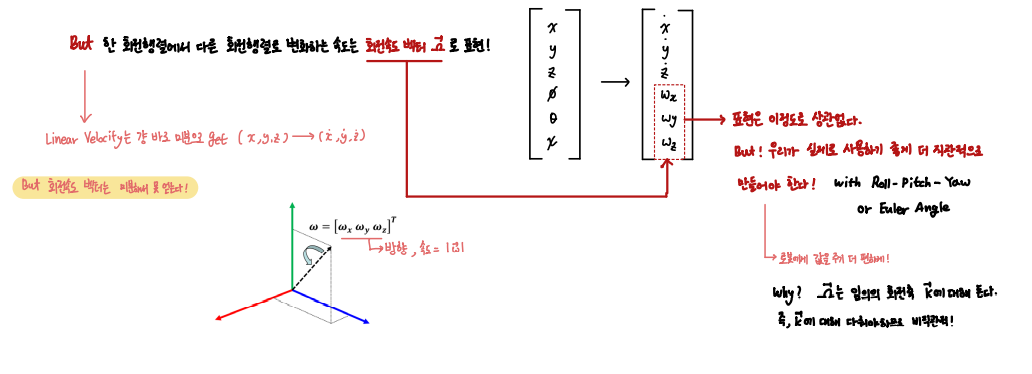 But 한 회전행렬에서 다른 회전행렬로 변화하는 속도는 회전속도 벡터 Ω 로 표현!
Linear Velocity는 걍 바로 미분으로 get (x,y,z) → (ẋ,ẏ,ż)
But 회전속도 벡터는 미분해서 못 얻는다!
x
y
z
ϕ
θ
χ
→
ẋ
ẏ
ż
ωx
ωy
ωz
표현은 이정도로 상관없다.
But! 우리가 실제로 사용하기 좋게 더 직관적으로
만들어야 한다! with Roll-Pitch-Yaw
or Euler Angle
로봇에게 값을 주기 더 편하게!
Why? Ω는 임의의 회전축 k에 대해 돈다.
즉, k에 대해 다뤄야하므로 비직관적!
ω = [ωx ωy ωz]^T
방향, 속도 = |Ω|